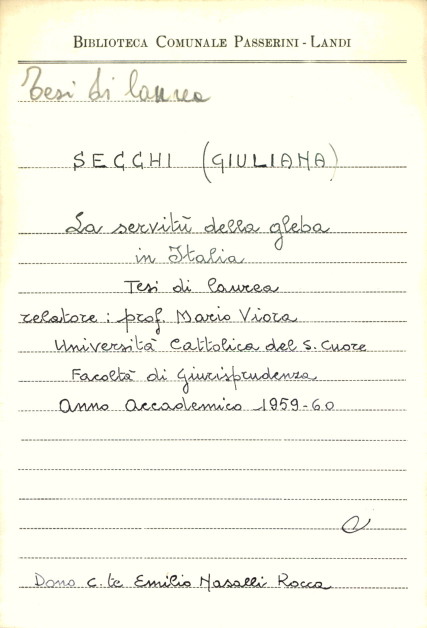 BIBLIOTECA COMUNALE PASSERINI - LANDI
Tesi di laurea
SECCHI (GIULIANA)
La servitù della gleba
in Italia
Tesi di laurea
relatore : prof. Mario Viora
Università Cattolica del S. Cuore
Facoltà di Giurisprudenza
Anno Accademico 1959-60
Dono c.te Emilio Nasalli Rocca